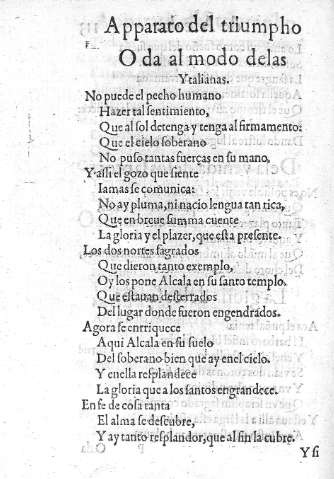 Apparato del triumpho
Oda al modo delas
Ytalianas.
No puede el pecho humano
Hazer tal sentimiento,
Que al sol detenga y tenga al firmamento:
Que el cielo soberano
No puso tantas fuerças en su mano,
Y assi el gozo que siente
Iamas se comunica:
No ay pluma, ni nacio lengua tan rica,
Que en breue summa cuente
La gloria y el plazer, que esta presente.
Los dos nortes sagrados
Que dieron tanto exemplo,
Oy los pone Alcala en su santo templo.
Que estauan desterrados
Del lugar donde fueron engendrados.
Agora se enrriquece
Aqui Alcala en su suelo
Del soberano bien que ay en el cielo.
Y en ella resplandece
La gloria que a los santos engrandece.
En fe de cosa tanta
El alma se descubre,
Y ay tanto resplandor, que al fin la cubre.
Y si